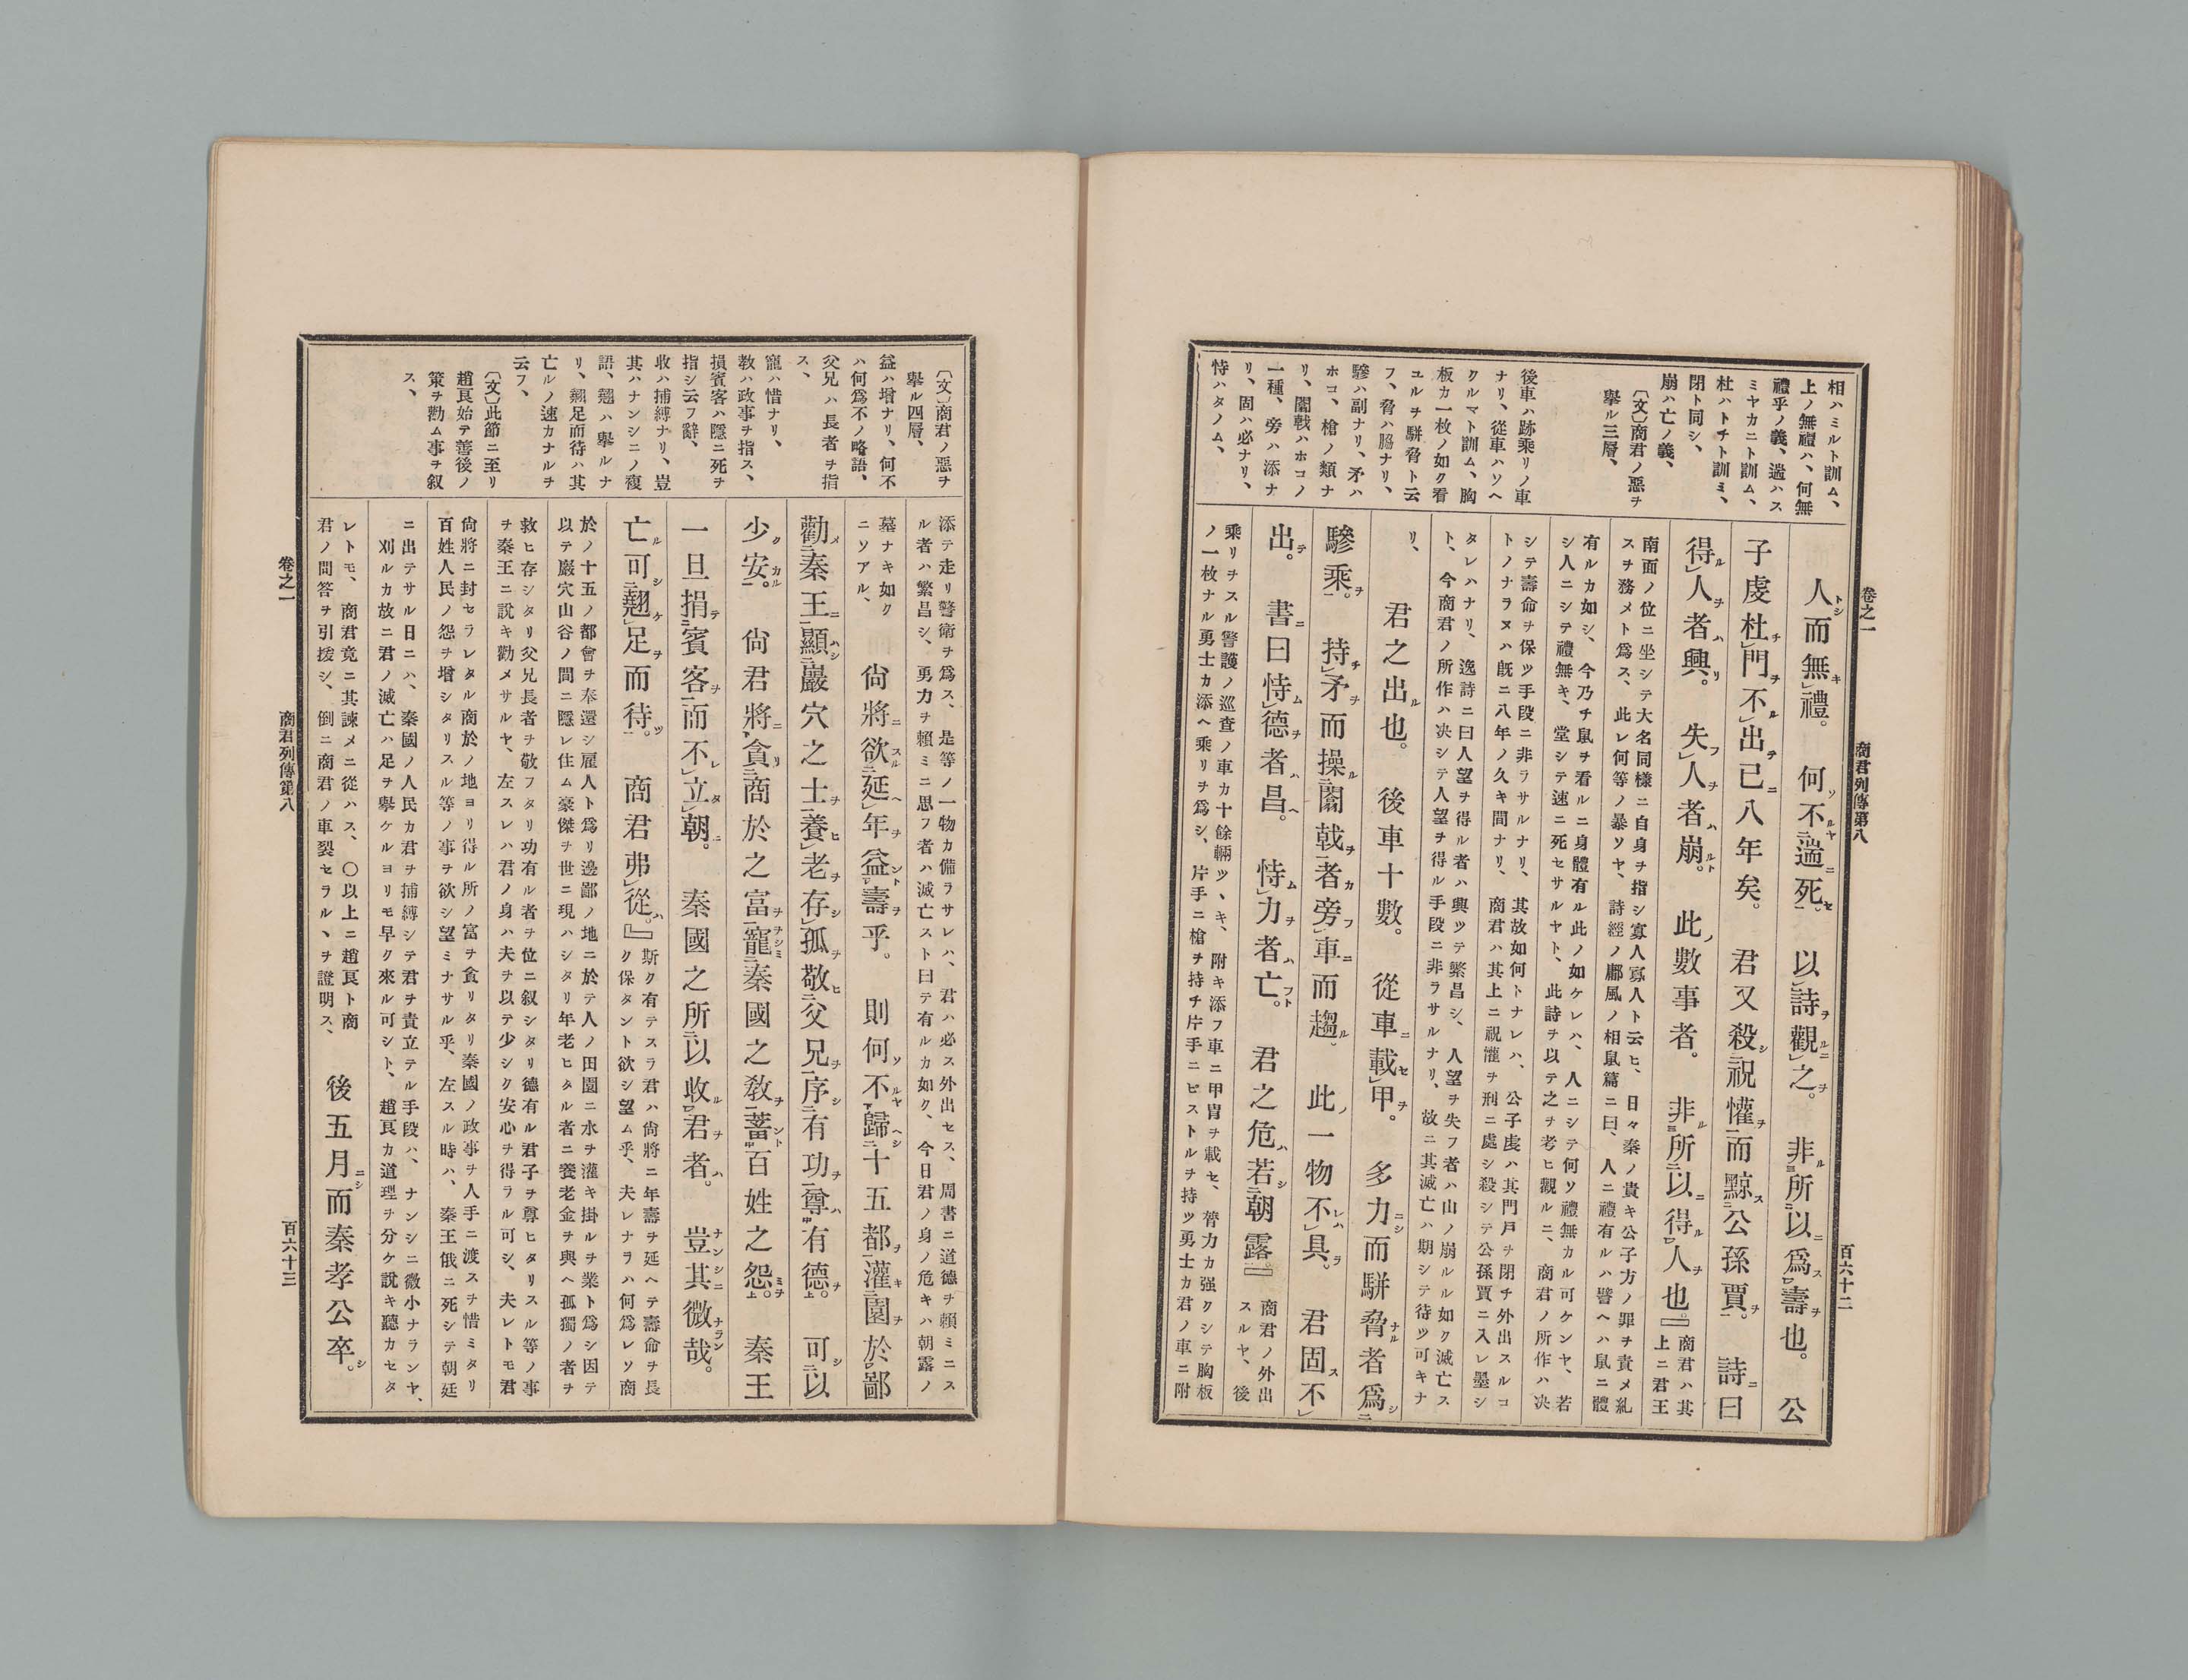 卷之一　商君列傳第八　百六十二
相ハミルト訓ム、
上ノ無禮ハ、何無
禮乎ノ義、遄ハス
ミヤカニト訓ム、
杜ハトチト訓ミ、
閉ト同シ、
崩ハ亡ノ義、
〔文〕商君ノ惡ヲ
擧ル三層、
後車ハ跡乘リノ車
ナリ、從車ハソヘ
クルマト訓ム、胸
板カ一枚ノ如ク看
ユルヲ駢脅ト云
フ、脅ハ脇ナリ、
驂ハ副ナリ、矛ハ
ホコ、槍ノ類ナ
リ、闟戟ハホコノ
一種、旁ハ添ナ
リ、固ハ必ナリ、
恃ハタノム、
人而無禮。何不遄死。以詩觀之。非所以爲壽也。公
子虔杜門不出已八年矣。君又殺祝懽而黥公孫賈。詩曰
得人者興。失人者崩。此數事者。非所以得人也。』商君ハ其
上ニ君王
南面ノ位ニ坐シテ大名同樣ニ自身ヲ指シ寡人寡人ト云ヒ、日々秦ノ貴キ公子方ノ罪ヲ責メ糺
スヲ務メト爲ス、此レ何等ノ暴ソヤ、詩經ノ鄘風ノ相鼠篇ニ曰、人ニ禮有ルハ譬ヘハ鼠ニ體
有ルカ如シ、今乃チ鼠ヲ看ルニ身體有ル此ノ如ケレハ、人ニシテ何ソ禮無カル可ケンヤ、若
シ人ニシテ禮無キ、堂シテ速ニ死セサルヤト、此詩ヲ以テ之ヲ考ヒ觀ルニ、商君ノ所作ハ决
シテ壽命ヲ保ツ手段ニ非ラサルナリ、其故如何トナレハ、公子虔ハ其門戸ヲ閉チ外出スルコ
トノナラヌハ旣ニ八年ノ久キ間ナリ、商君ハ其上ニ祝懽ヲ刑ニ處シ殺シテ公孫賈ニ入レ墨シ
タレハナリ、逸詩ニ曰人望ヲ得ル者ハ興ツテ繁昌シ、人望ヲ失フ者ハ山ノ崩ルル如ク滅亡ス
ト、今商君ノ所作ハ决シテ人望ヲ得ル手段ニ非ラサルナリ、故ニ其滅亡ハ期シテ待ツ可キナ
リ、
君之出也。後車十數。從車載甲。多力而駢脅者爲
驂乘。持矛而操闟戟者旁車而趨。此一物不具。君固不
出。書曰恃德者昌。恃力者亡。君之危若朝露。』商君ノ外出
スルヤ、後
乘リヲスル警護ノ巡査ノ車カ十餘輛ツヽキ、附キ添フ車ニ甲冑ヲ載セ、膂力カ强クシテ胸板
ノ一枚ナル勇士カ添ヘ乘リヲ爲シ、片手ニ槍ヲ持チ片手ニピストルヲ持ツ勇士カ君ノ車ニ附
〔文〕商君ノ惡ヲ
擧ル四層、
益ハ增ナリ、何不
ハ何爲不ノ略語、
父兄ハ長者ヲ指
ス、
寵ハ惜ナリ、
敎ハ政事ヲ指ス、
損賓客ハ隱ニ死ヲ
指シ云フ辭、
收ハ捕縛ナリ、豈
其ハナンシニノ複
語、翹ハ擧ルナ
リ、翹足而待ハ其
亡ルノ速カナルヲ
云フ、
〔文〕此節ニ至リ
趙良始テ善後ノ
策ヲ勸ム事ヲ叙
ス、
添テ走リ警衛ヲ爲ス、是等ノ一物カ備ラサレハ、君ハ必ス外出セス、周書ニ道德ヲ賴ミニス
ル者ハ繁昌シ、勇力ヲ賴ミニ思フ者ハ滅亡スト曰テ有ルカ如ク、今日君ノ身ノ危キハ朝露ノ
墓ナキ如ク
ニソアル、
尙將欲延年益壽乎。則何不歸十五都灌園於鄙
勸秦王顯巖穴之士養老存孤敬父兄序有功尊有德。可以
少安。尙君將貪商於之富寵秦國之敎蓄百姓之怨。秦王
一旦捐賓客而不立朝。秦國之所以收君者。豈其微哉。
亡可翹足而待。商君弗從。』斯ク有テスラ君ハ尙將ニ年壽ヲ延ヘテ壽命ヲ長
ク保タント欲シ望ム乎、夫レナラハ何爲レソ商
於ノ十五ノ都會ヲ奉還シ雇人ト爲リ邊鄙ノ地ニ於テ人ノ田園ニ水ヲ灌キ掛ルヲ業ト爲シ因テ
以テ巖穴山谷ノ間ニ隱レ住ム豪傑ヲ世ニ現ハシタリ年老ヒタル者ニ養老金ヲ與ヘ孤獨ノ者ヲ
救ヒ存シタリ父兄長者ヲ敬フタリ功有ル者ヲ位ニ叙シタリ德有ル君子ヲ尊ヒタリスル等ノ事
ヲ秦王ニ說キ勸メサルヤ、左スレハ君ノ身ハ夫ヲ以テ少シク安心ヲ得ラル可シ、夫レトモ君
尙將ニ封セラレタル商於ノ地ヨリ得ル所ノ富ヲ貪リタリ秦國ノ政事ヲ人手ニ渡スヲ惜ミタリ
百姓人民ノ怨ヲ增シタリスル等ノ事ヲ欲シ望ミナサル乎、左スル時ハ、秦王俄ニ死シテ朝廷
ニ出テサル日ニハ、秦國ノ人民カ君ヲ捕縛シテ君ヲ責立テル手段ハ、ナンシニ微小ナランヤ、
刈ルカ故ニ君ノ滅亡ハ足ヲ擧ケルヨリモ早ク來ル可シト、趙良カ道理ヲ分ケ說キ聽カセタ
レトモ、商君竟ニ其諫メニ從ハス、〇以上ニ趙良ト商
君ノ問答ヲ引撥シ、倒ニ商君ノ車裂セラルヽヲ證明ス、
後五月而秦孝公卒。
卷之一　商君列傳第八　百六十三